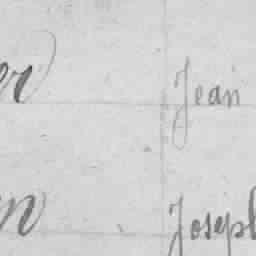 er Jean
n Joseph